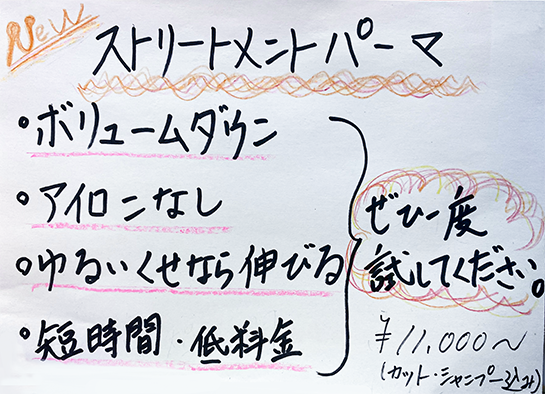 NEW
ストリートメントパーマ
• ボリュームダウン
• アイロンなし
• ゆるいくせなら伸びる
• 短時間・低料金
ぜひ一度
試してください。
¥11,000～
(カット・シャンプー込み)